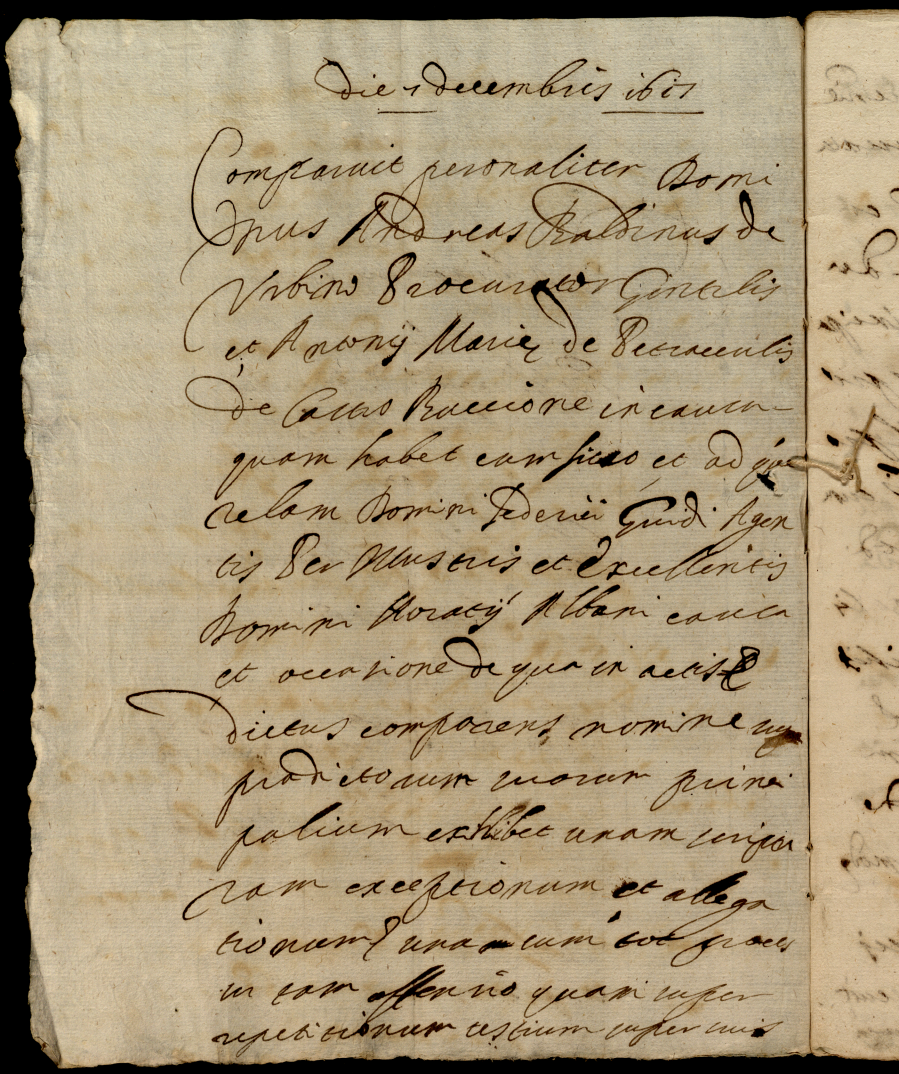 Die 7 decembris 1611
Comparuit personaliter Domi
nus Andreas Baldinus de
Urbino Procurator Gentilis
et Antonij Marię de Petraccinis
de Castro Baccione in causa
quam habet cum fisco et ad que
relam Domini Federici Guidi Agen
tis Per Illustris et Excellentis
Domini Horatij Albani causa
et occasione de qua in actis
Dictus comparens nomine
predictorum suorum princi
palium exhibet unam scriptu
ram exceptionum et allega
tionum unam cum tot
in tam offensio quam super
repetitionum testium super suis